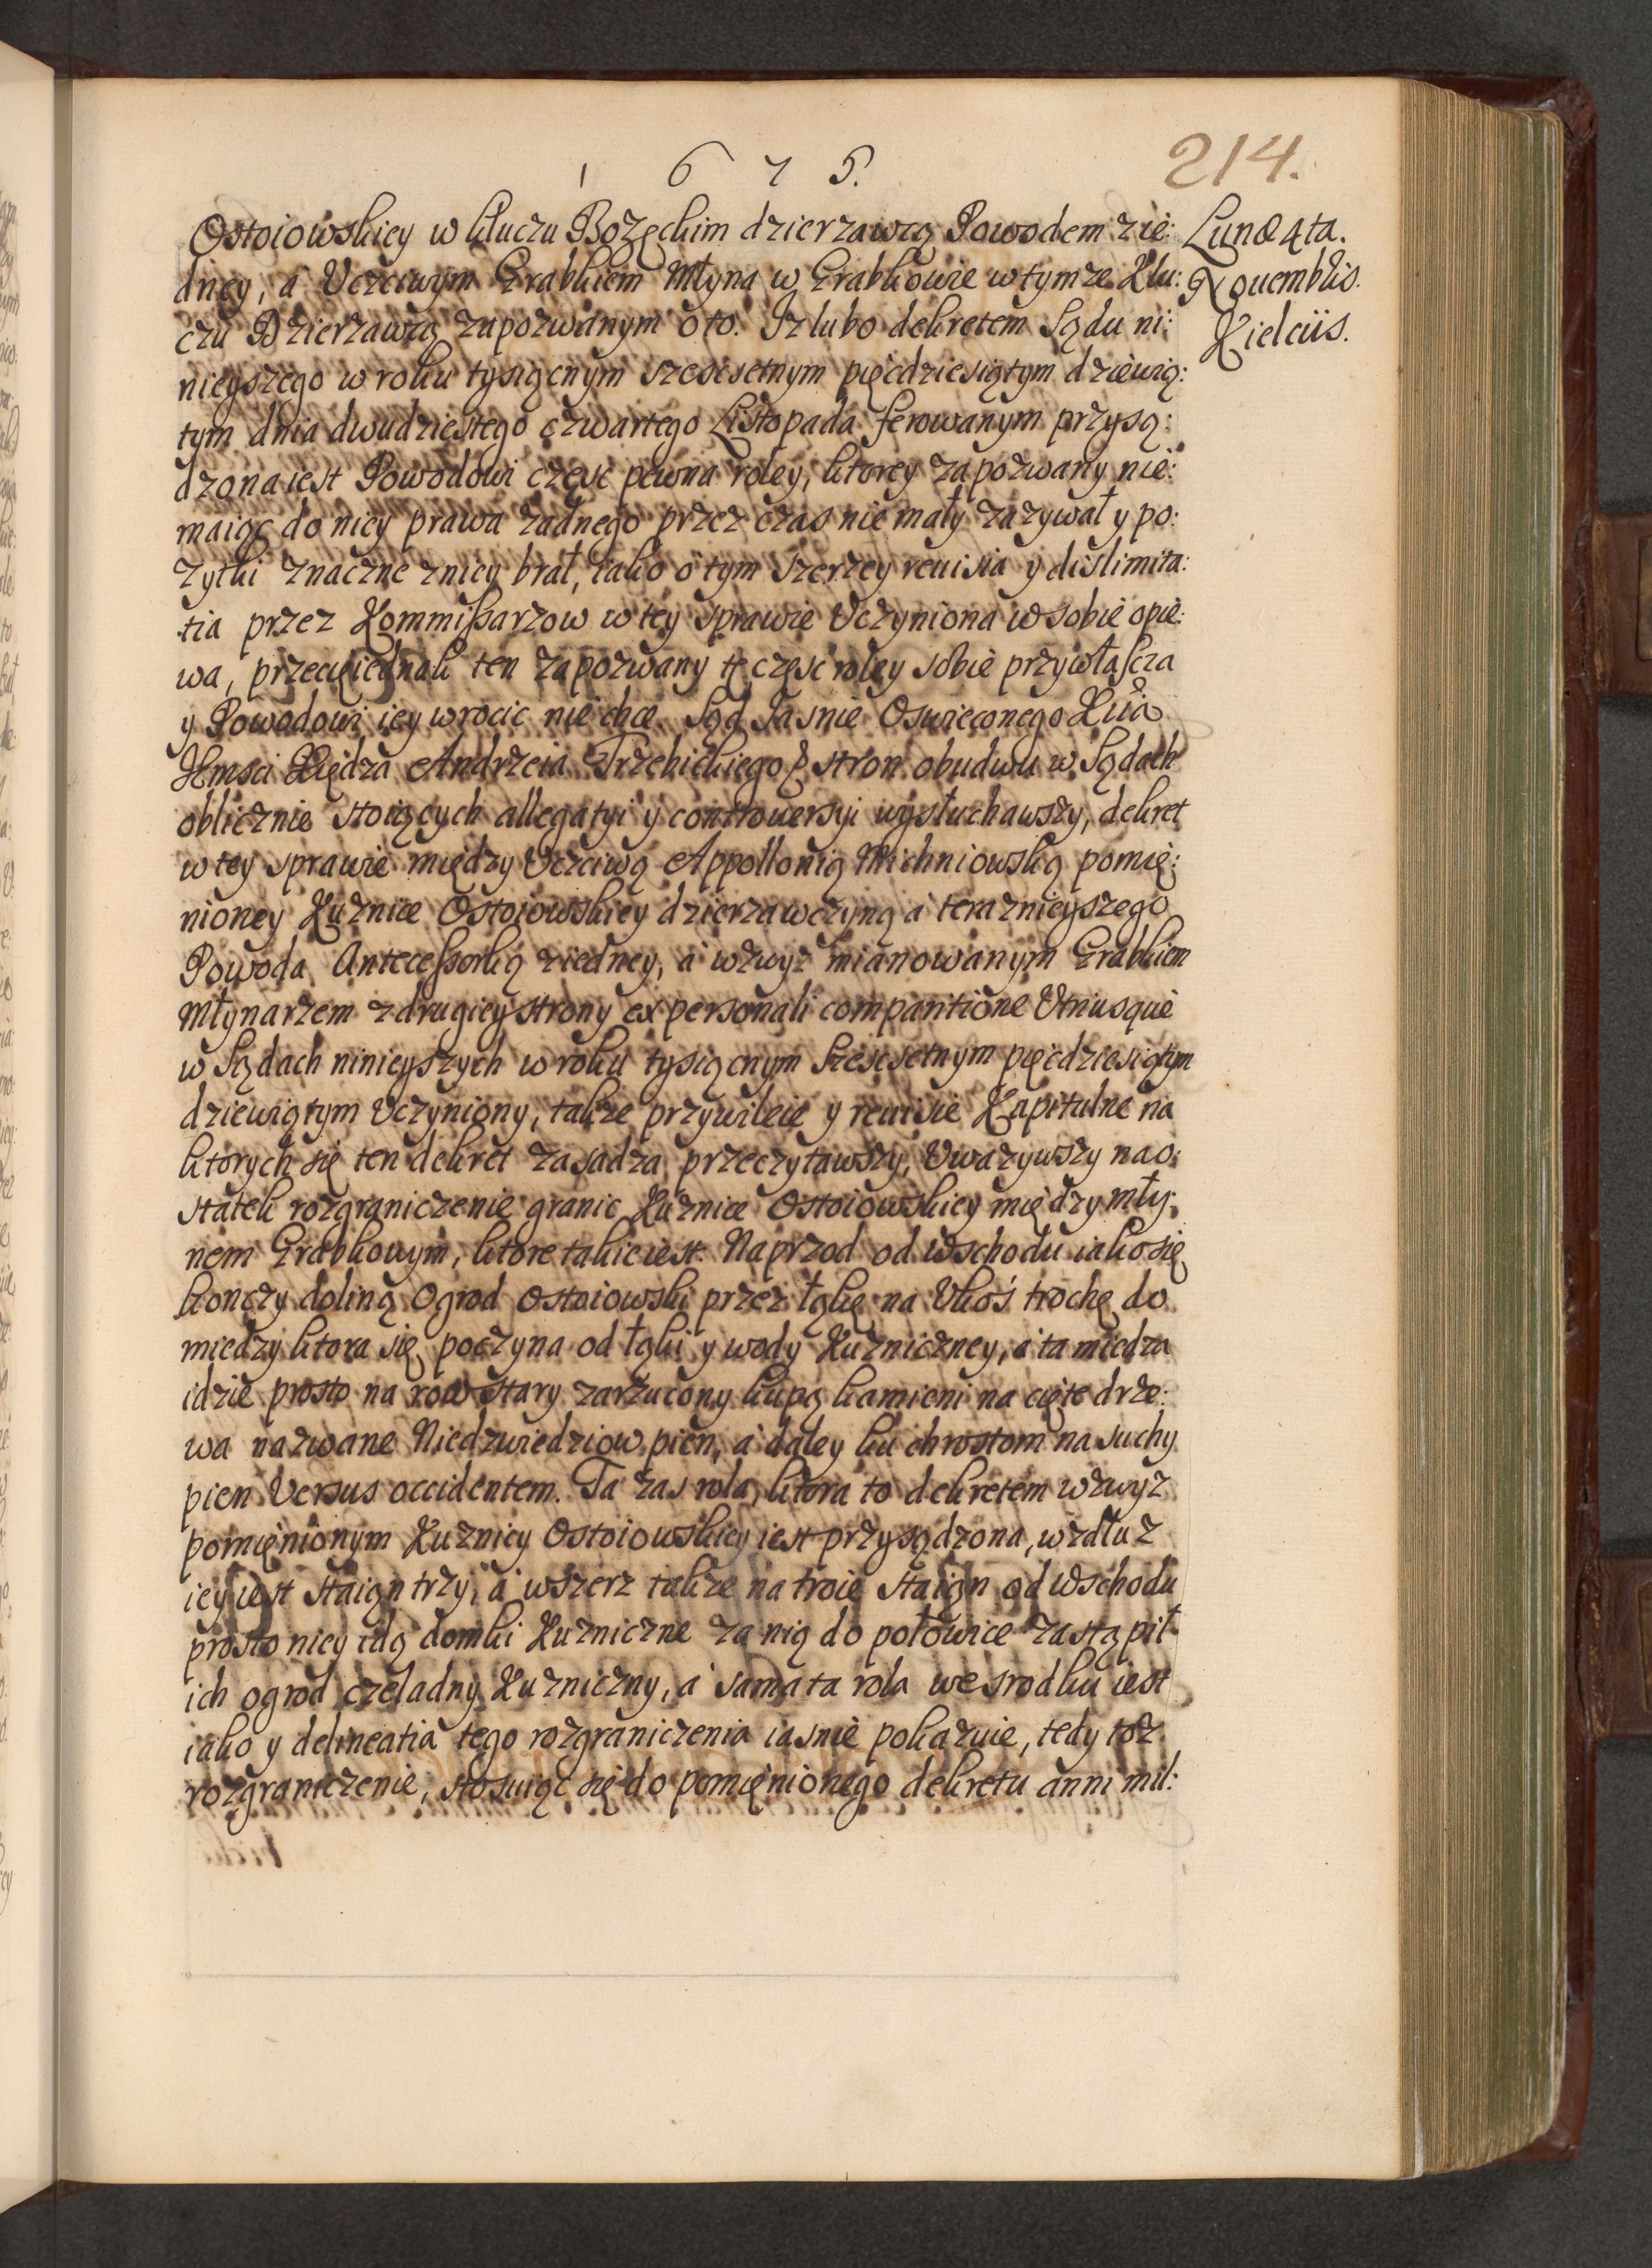 1675.
214.
Lunæ 4ta.
Nouembris.
Kielciis.
Ostoiowskiey w kluczu Bozęckim dzierzawcą Powodem zie:
dney, a Vczciwym Grabkiem Młyna w Grabkowie w tymze Klu:
czu Dzierzawcą zapozwanym o to. Iz lubo dekretem Sądu ni:
nieyszego w roku tysiącnym szescsetnym pięcdziesiątym dziewią:
tym dnia dwudziestego czwartego Listopada ferowanym przysą:
dzona iest Powodowi częsc pewna roley, ktorey zapozwany nie:
maiąc do niey prawa zadnego przez czas nie mały zazywał y po:
zytki znaczne z niey brał, iako o tym szerzey reuisia y dislimita:
tia przez Kommissarzow w tey sprawie Vczyniona w sobie opie:
wa, przecię iednak ten zapozwany tę częsc roley sobie przywłascza
y Powodowi iey wrocic nie chce. Sąd Iasnie Oswieconego Xcia
Jmsci Xiędza Andrzeia Trzebickiego stron obudwu w Sądach
oblicznie stoiących allegatyi y controuersyi wysłuchawszy, dekret
w tey sprawie między Vczciwą Appollonią Michniowską pomię:
nioney Kuznice Ostoiowskiey dzierzawczyną a terazneyszego
Powoda Antecessorką ziedney, a wzwyz mianowanym Grabkiem
Młynarzem z drugiey strony ex personali comparitione Vtriusque
w Sądach ninieyszych w roku tysiącnym szescsetnym pięcdziesiątym
dziewiątym Vczyniony, takze przywileie y reuisie Kapitulne na
ktorych się ten dekret zasadza przeczytawszy, Vwazywszy nao:
statek rozgraniczenie granic Kuznice Ostoiowskiey między mły:
nem Grabkowym, ktore takie iest. Naprzod od wschodu iako się
konczy doliną Ogrod Ostoiowski przez łąkę na Vkoś trochę do
miedzy ktora się poczyna od łąki y wody Kuzniczney, a ta miedza
idzie prosto na row stary zarzucony kupą kamieni na cięte drze:
wa nazwane Niedzwiedziow pien, a daley ku chrostom na suchy
pien Versus occidentem. Ta zas rola, ktora to dekretem wzwyz
pomięnionym Kuznicy Ostoiowskiey iest przysądzona, wzdłuz
iey iest staian trzy, a wszerz takze na troie staian od wschodu
prosto niey idą domki Kuzniczne za nią do połowice zastąpił
ich ogrod czeladny Kuzniczny, a sama ta rola we srodku iest
iako y delineatia tego rozgraniczenia iasnie pokazuie, tedy toz
rozgraniczenie, stosuiąc się do pomięnionego dekretu anni mil: